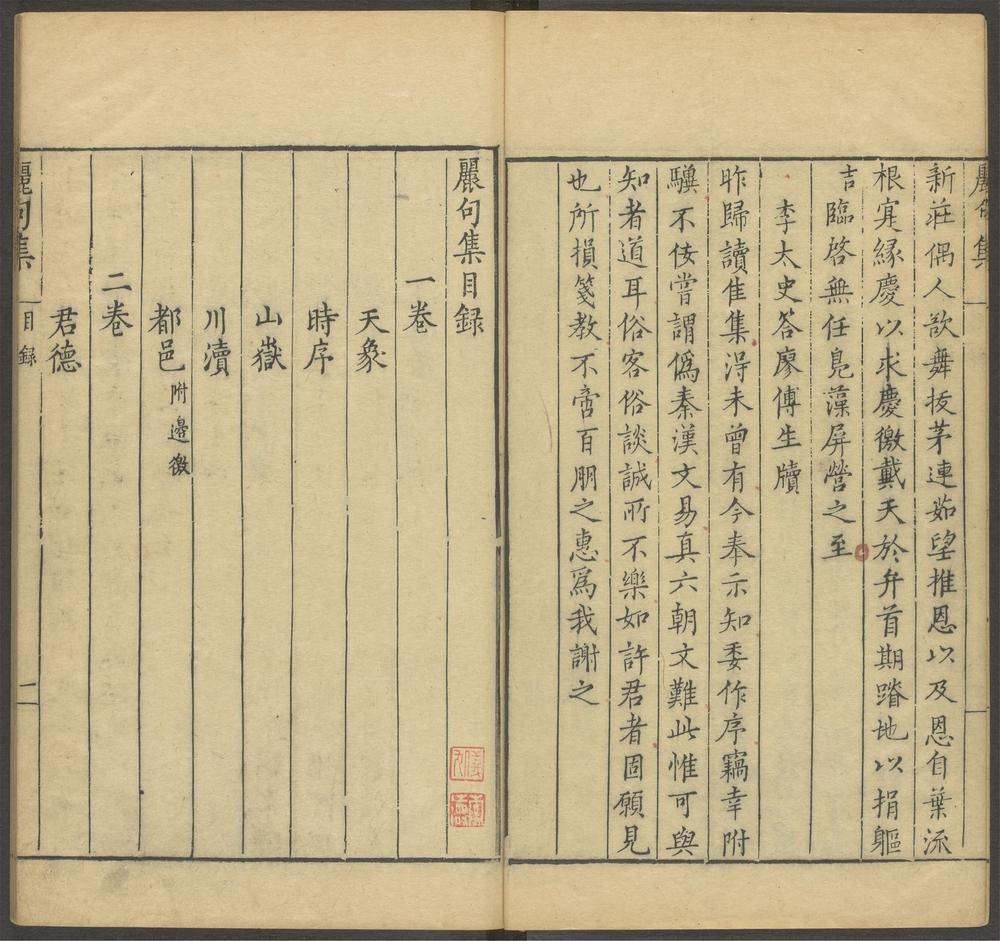 麗句集
新莊偶人歆舞抜茅連茹望推恩以及恩自葉流
根寔緣慶以求慶徼戴天於弁首期蹐地以捐軀
吉臨啓無任鳧藻屏營之至
李太史答廖傅生牘
昨歸讀佳集淂未曾有今奉示知委作序竊幸附
驥不佞嘗謂僞秦漢文易真六朝文難此惟可與
知者道耳俗客俗談誠所不樂如許君者固願見
也所損箋教不啻百朋之惠爲我謝之
麗句集目録
一卷
天象
時序
山嶽
川瀆
都邑 附邊徼
二卷
君德
麗句集 目録 二